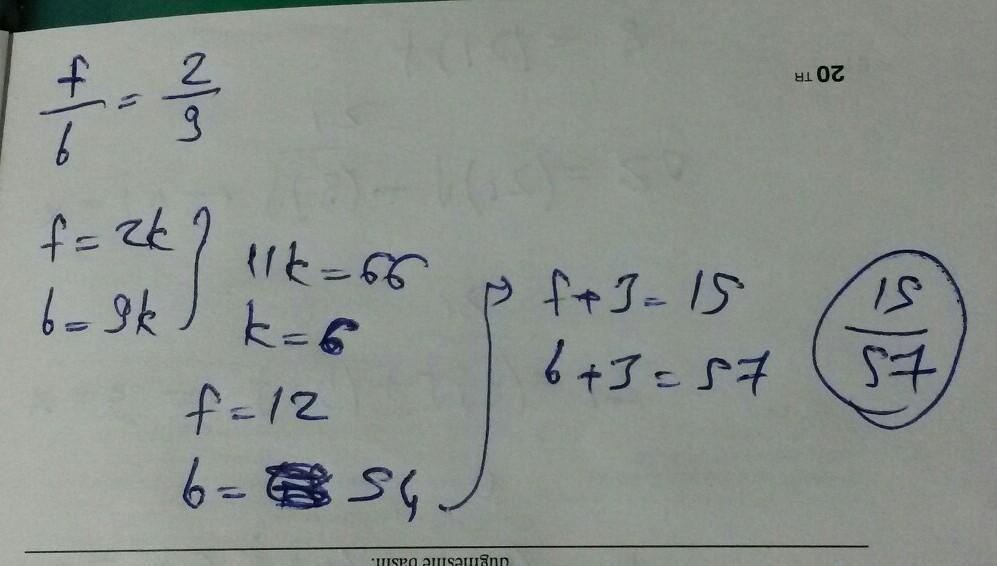 f/b = 2/9
f = 2k
b = 9k
11k = 66
k = 6
f = 12
b = 54
f + 3 = 15
b + 3 = 57
15/57
20 TR
düğmesine basın.